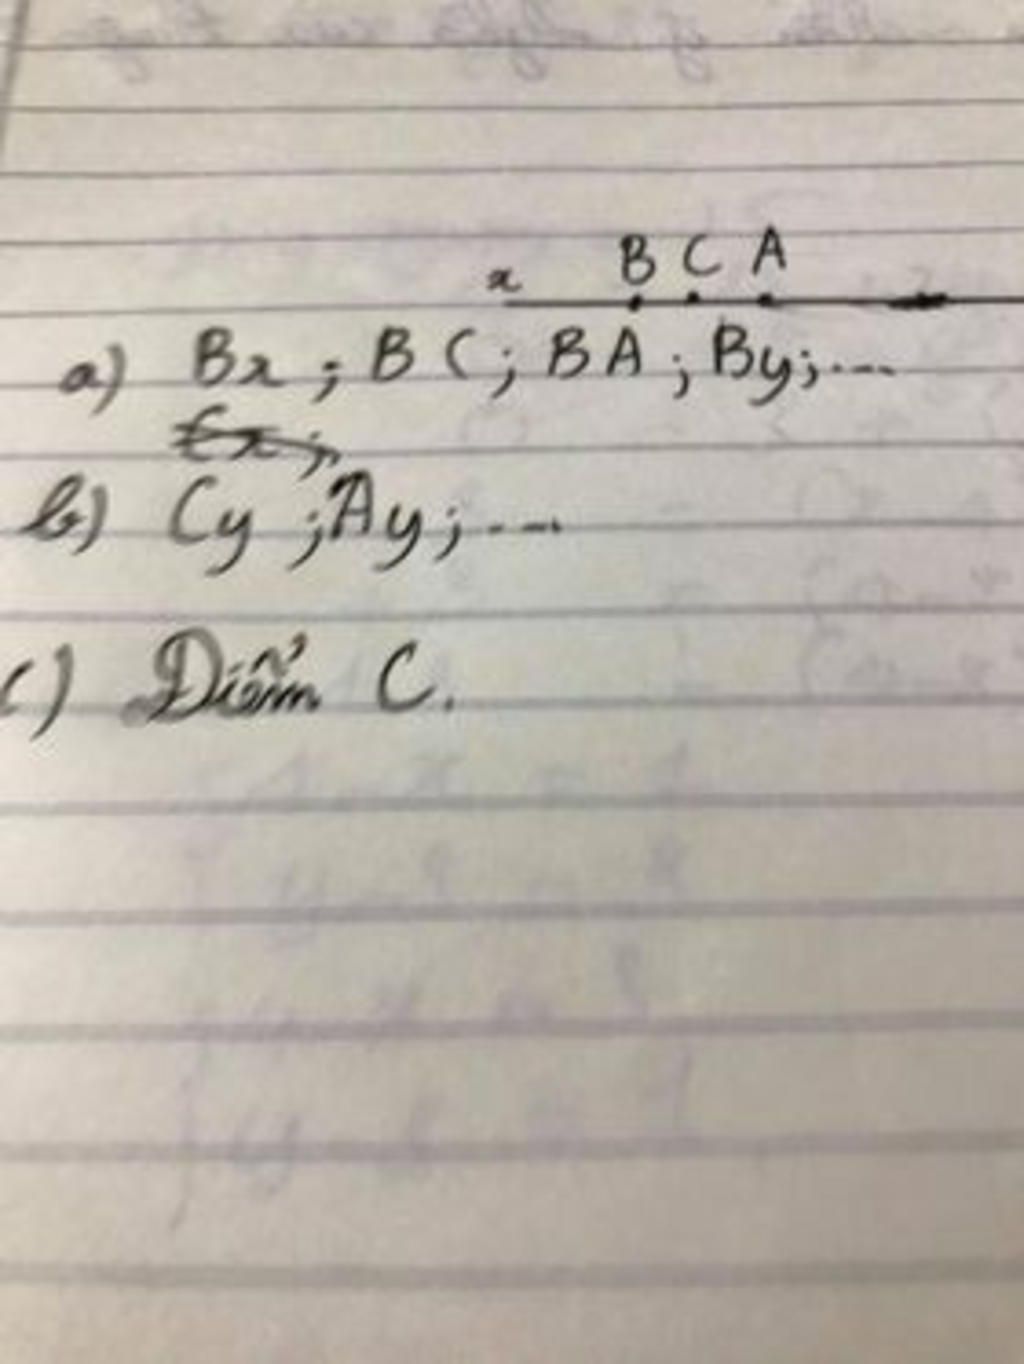 x B C A
a) Bx ; BC ; BA ; By ; ...
b) Cy ; Ay ; ...
c) Điểm C.